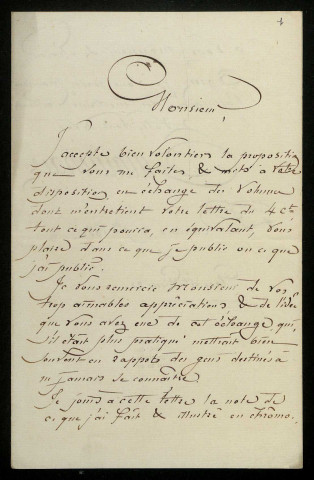 Monsieur,
J'accepte bien volontiers la proposition
que vous me faites & mets à votre
disposition en échange du volume
dont m'entretient votre lettre du 4 ct
tout ce qui pourra, en équivalant, vous
plaire dans ce que je publie ou ce que
j'ai publié.
Je vous remercie Monsieur de vos
trop aimables appréciations & de l'idée
que vous avez eue de cet échange qui,
s'il était plus pratiqué mettrait bien
souvent en rapports des gens destinés à
ne jamais se connaître.
Je joins a cette lettre la note de
ce que j'ai fait & illustré en chromo.